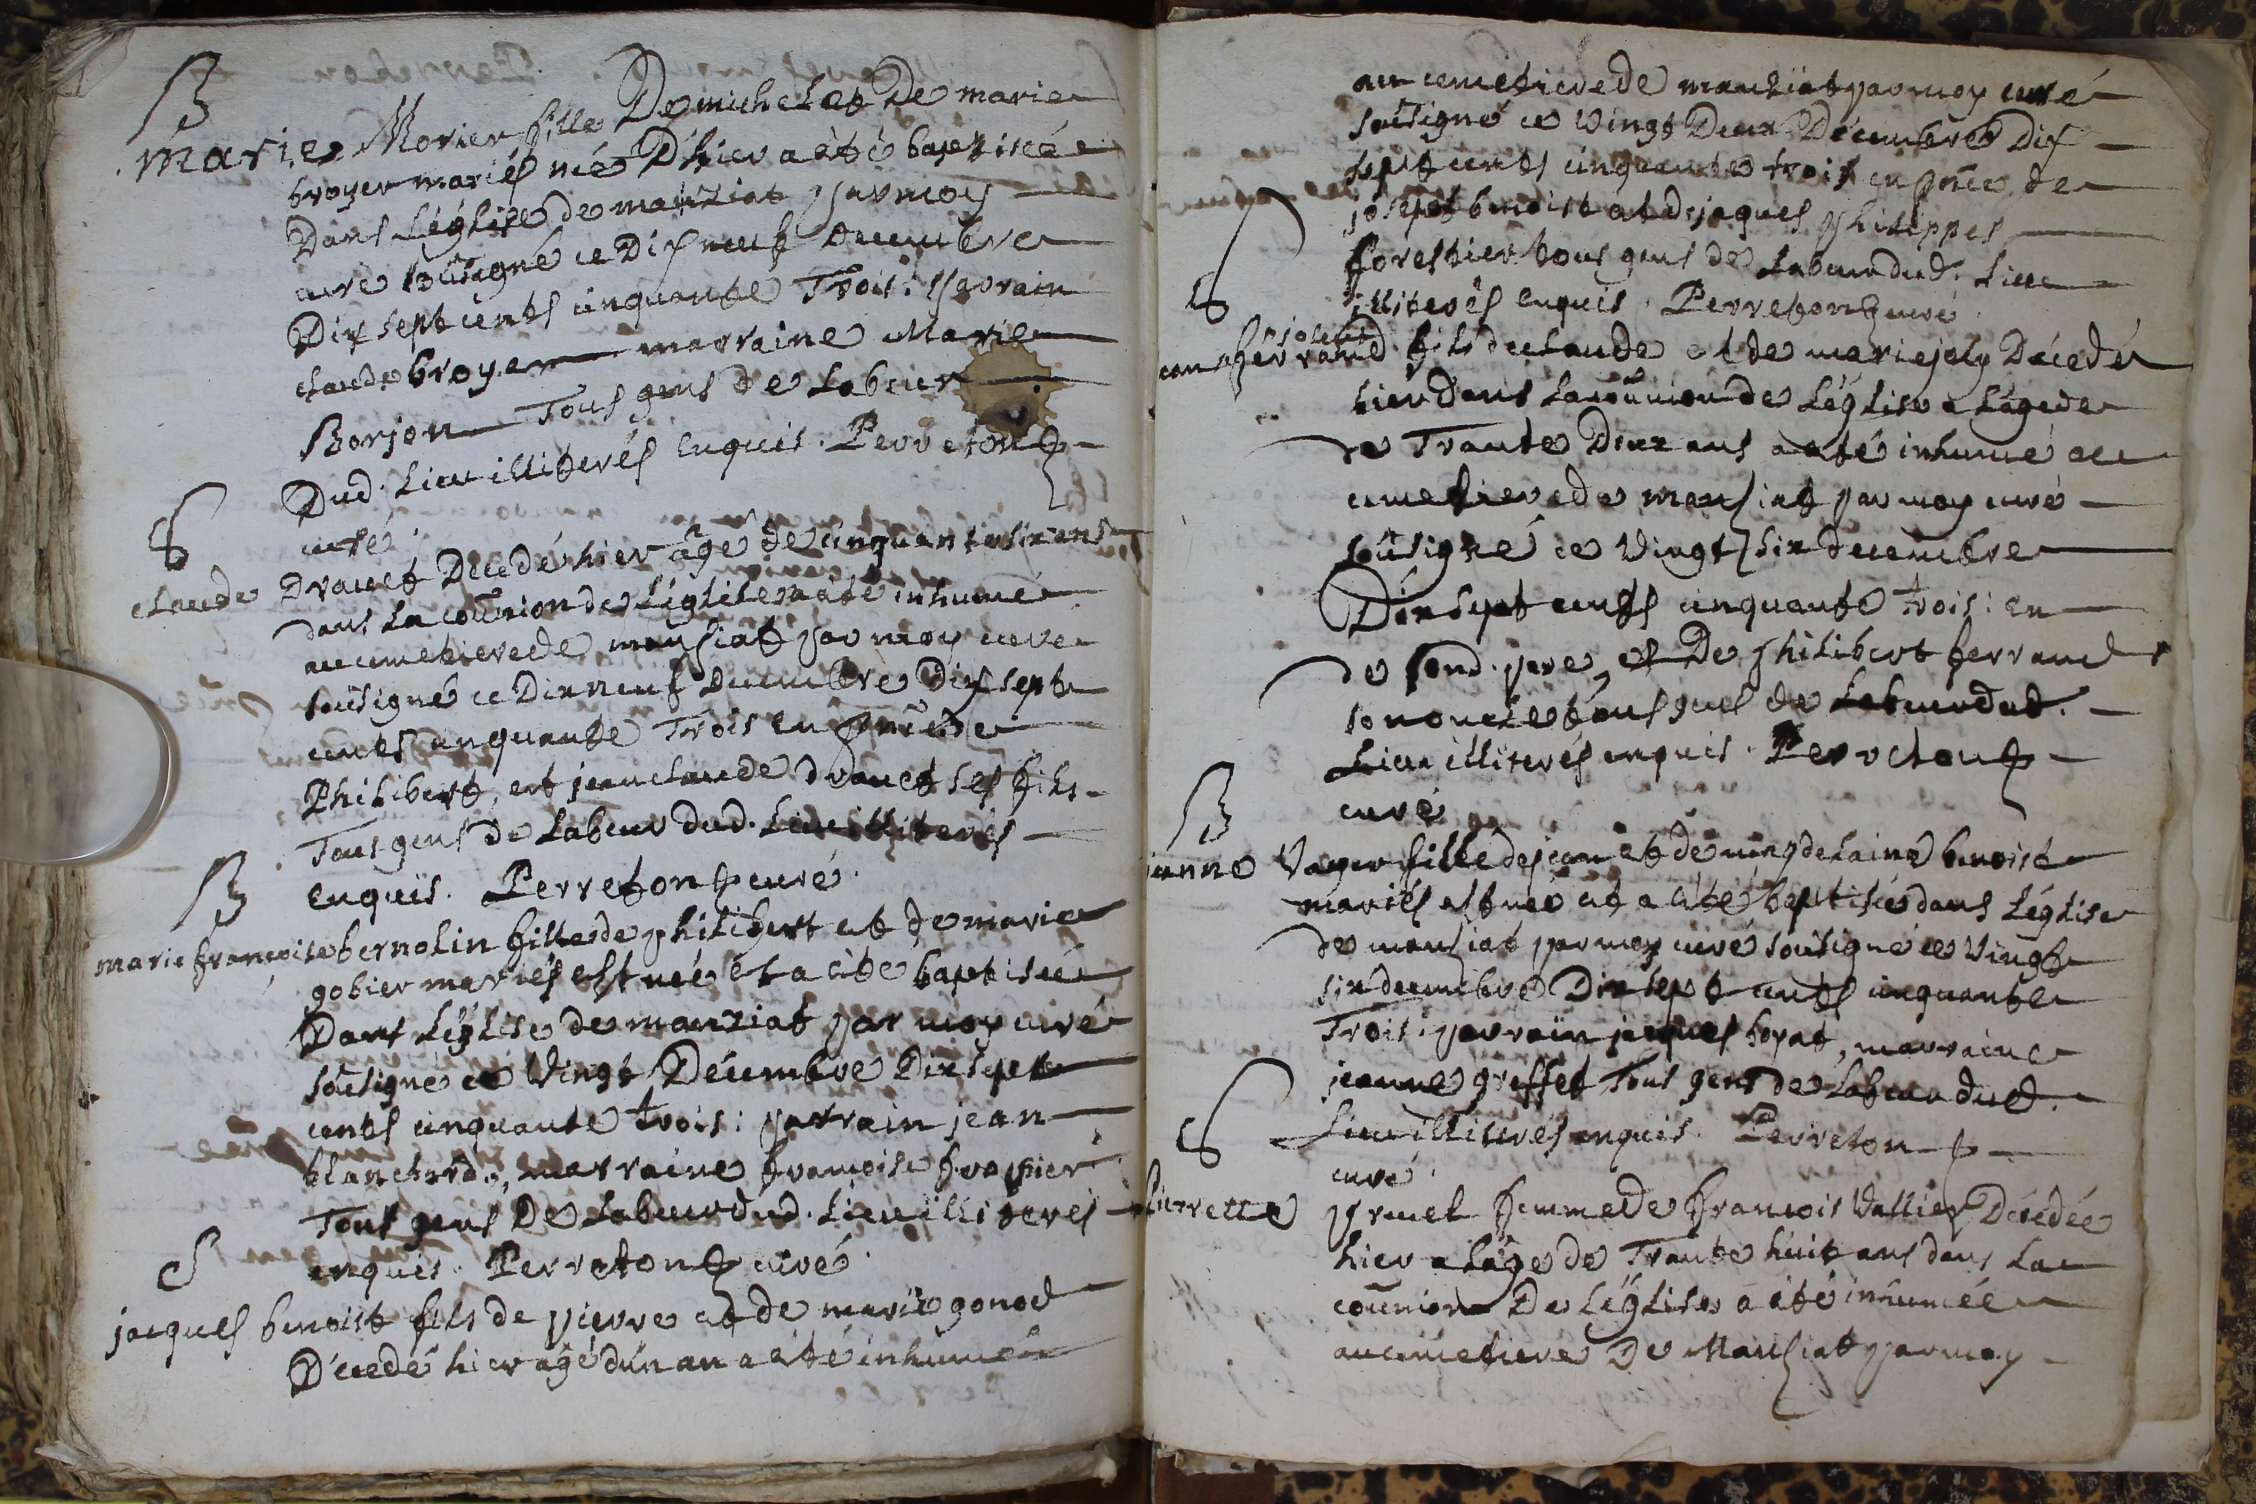 B
marie Morier fille De michel et De marie
broyer mariés née D'hier a èté baptisée
Dans L'église de manziat par moy
curé soûsigné ce Dix neuf Decembre
Dix sept cents cinquante Trois: parrain
claude broyer marraine Marie
Borjon Tous gens de Labeur
Dud. Lieu illiterés Enquis. Perreton
curé.
S
claude Dravet Decedé hier âgé de cinquante six ans
dans La coũnion de L'église a èté inhumé
au cimetiere de mansiat par moy curé
soûsigné ce Dix neuf Decembre Dix sept
cents cinquante Trois en pñce de
Philibert, et jean claude dravet ses fils
Tous gens de Labeur dud. Lieu illiterés
Enquis. Perreton curé.
B
marie françoise bernolin fille de philibert et de marie
gobier mariés est née et a èté baptisée
Dans L'église de manziat par moy curé
soûsigné ce Vingt Décembre Dix sept
cents cinquante trois: parrain jean
blanchard, marraine françoise
Tous gens De Labeur dud. Lieu illiterés
enquis. Perreton curé.
S
jacques benoist fils de pierre et de marie gonod
Décedé hier agé dún an a èté inhumé
au cimetiere de manziat par moy curé
soûsigné ce Vingt Deux Décembre Dix
sept cents cinquante trois en pñce de
joseph benoist et de jaques philippes
forestier tous gens de Labeur dud. Lieu
illiterés Enquis. Perreton curé
S
joseph
ferrand fils de claude et de marie joly Décedé
hier dans La coũnion de L'église a L'âge de
de Trante Deux ans a èté inhumé au
cimetiere de mansiat par moy curé
soûsigné ce Vingt six decembre
Dix sept cents cinquante trois: en
de sond. pere, et De philibert ferrand
son oncle tous gens de Labeur dud.
Lieu illiterés enquis. Perreton
curé
B
janne Vager fille de jean et de benoist
mariés est née et a èté baptisée dans L'église
de mansiat par moy curé soûsigné ce Vingt
six decembre Dix sept cents cinquante
Trois. parrain jaques boyat, marraine
jeanne greffet Tous gens de Labeur dud.
Lieu illiterés enquis. Perreton
curé.
S
pierrette pruel femme de françois Vallier Décédée
hier a L'âge de Trante huit ans dans La
coũnion De L'église a èté inhumée
au cimetiere De Mansiat par moy